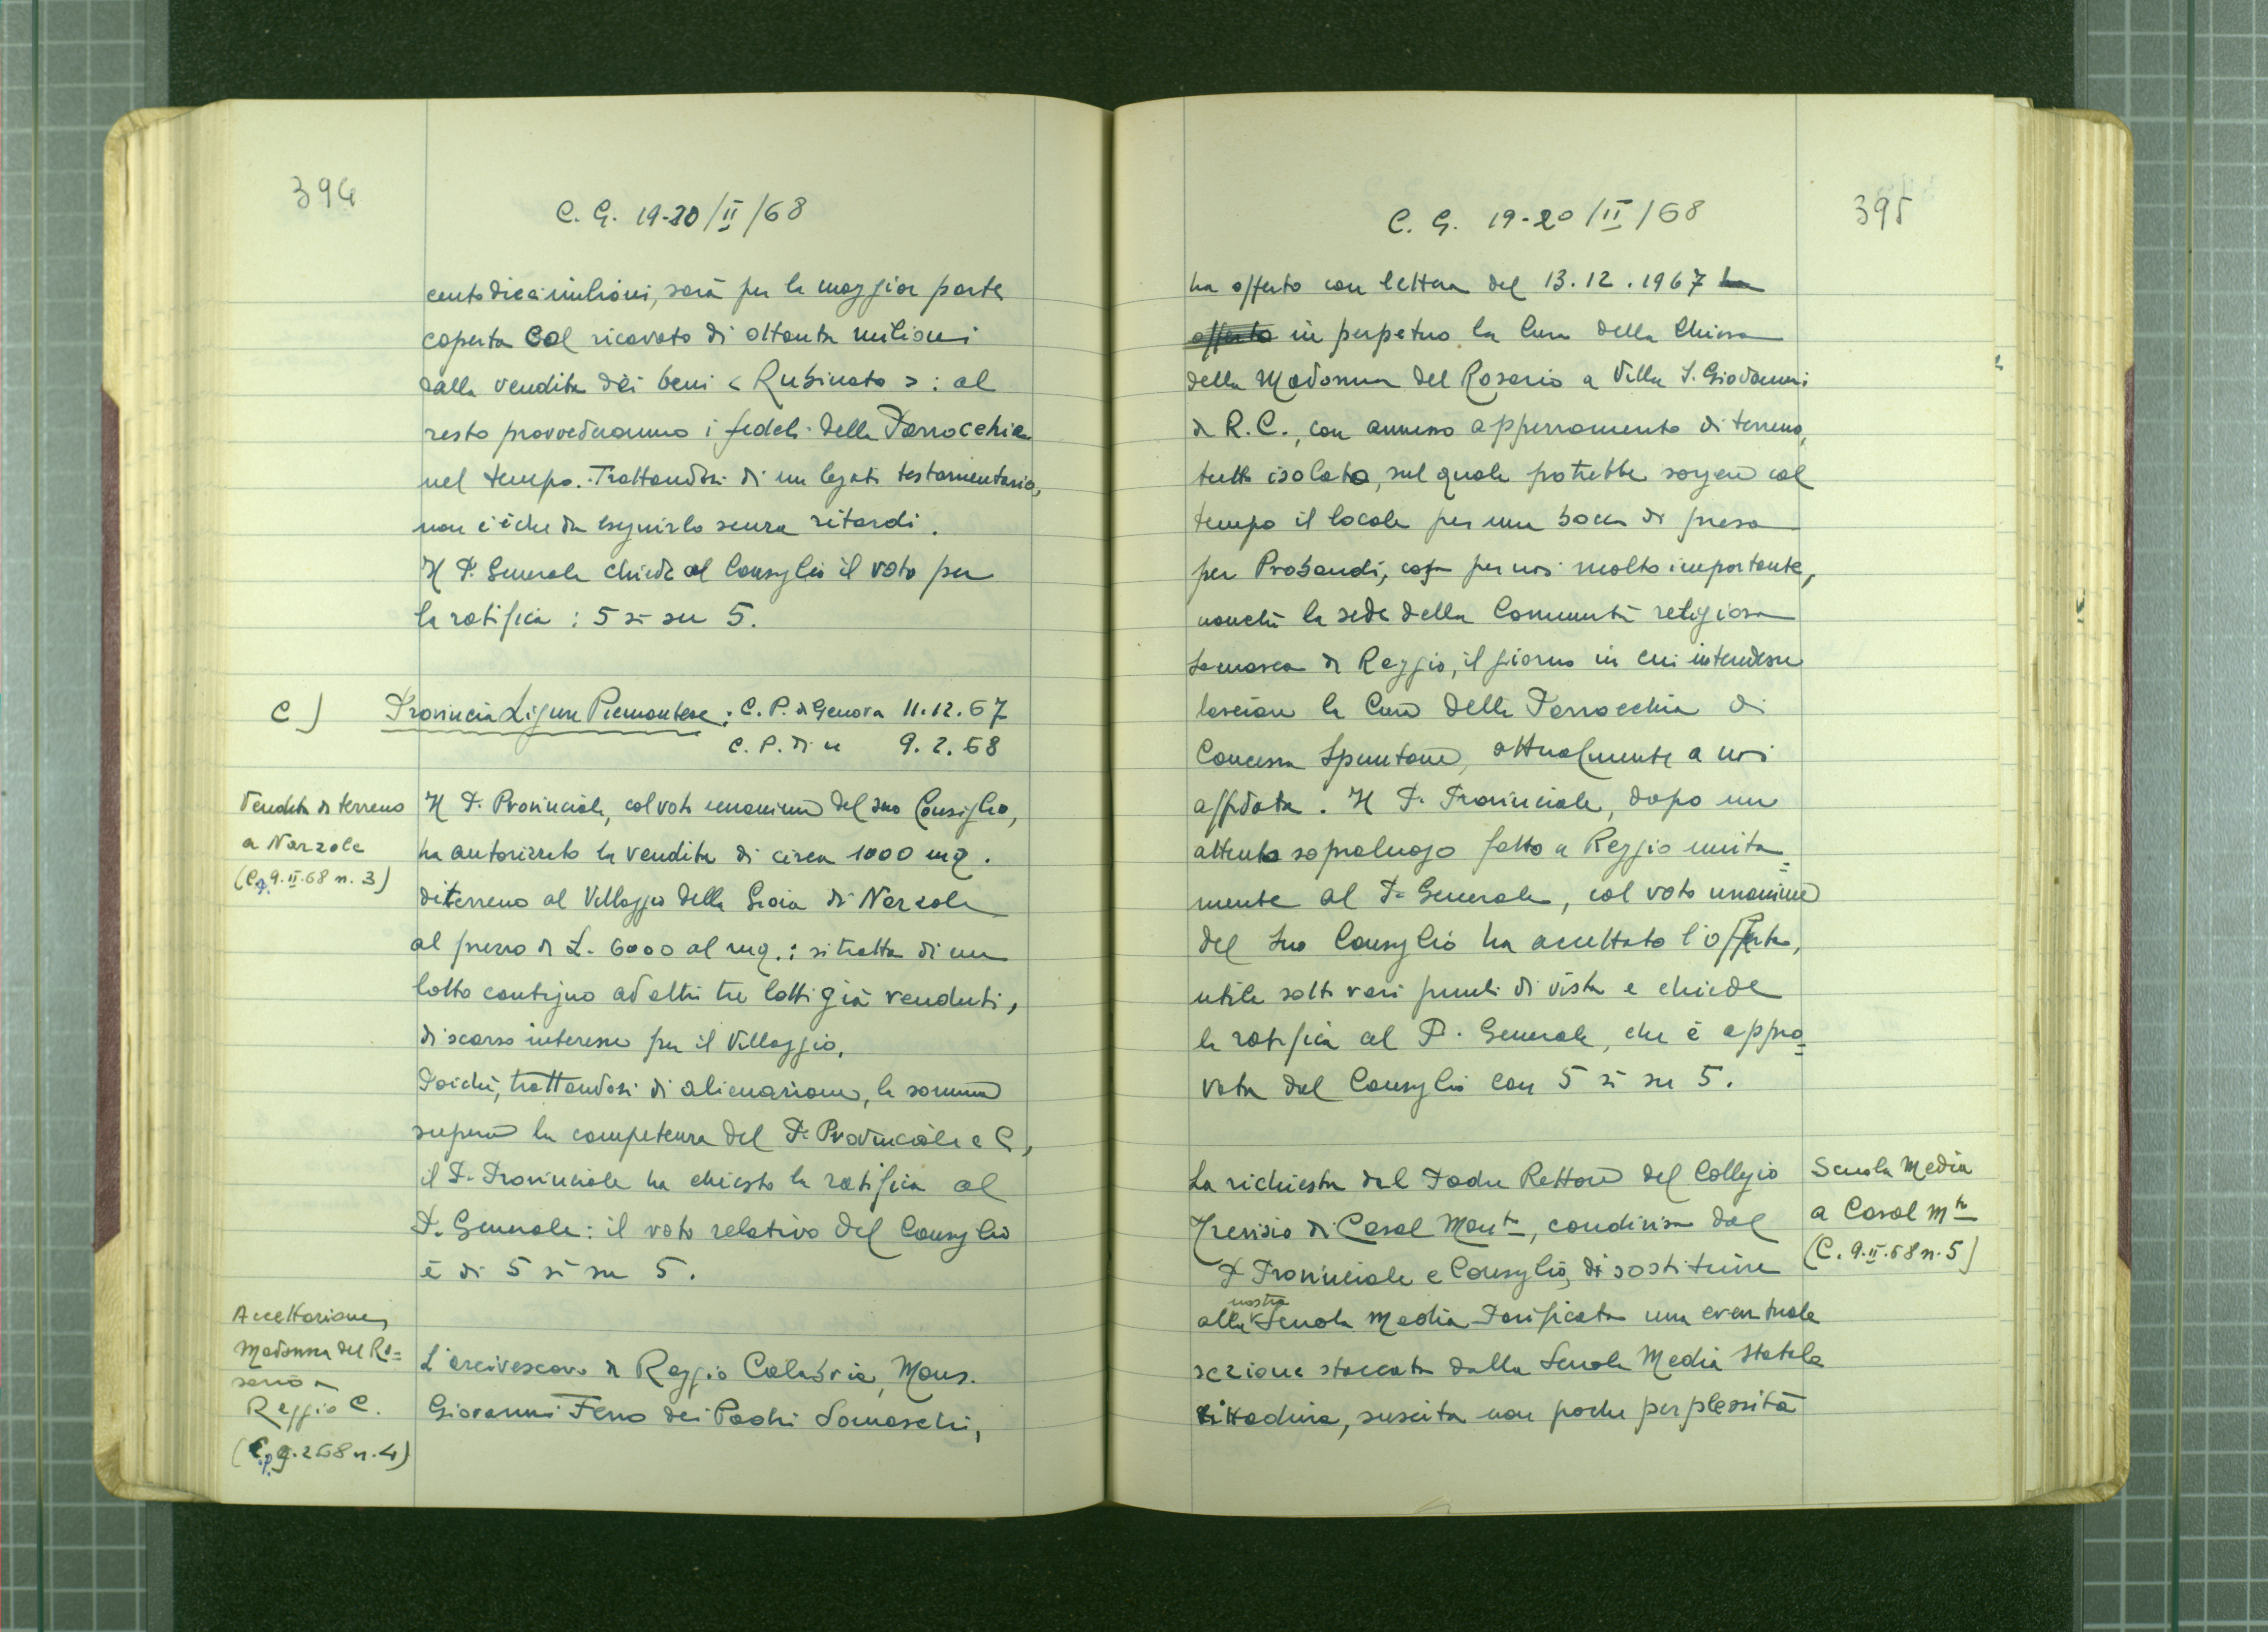 394
C. G. 19-20/II/68
centodiecimilioni, sarà per la maggior parte
coperta col ricavato di ottanta milioni
dalla vendita dei beni < Rubinato > : al
resto provvederanno i fedeli della Parrocchia
nel tempo. Trattandosi di un legato testamentario,
non c'è che da eseguirlo senza ritardi.
Il P. Generale chiede al Consiglio il voto per
la ratifica : 5 sì su 5.
C) Provincia Ligure Piemontese : C. P. di Genova 11.12.67
C. P. di " 9.2.68
Vendita di terreno
a Narzole
(C.P. 9.II.68 n. 3)
Il P. Provinciale, col voto unanime del suo Consiglio,
ha autorizzato la vendita di circa 1000 mq.
di terreno al Villaggio della Gioia di Narzole
al prezzo di L. 6000 al mq. : si tratta di un
lotto contiguo ad altri tre lotti già venduti,
di scarso interesse per il Villaggio.
Poichè, trattandosi di alienazione, la somma
supera la competenza del P. Provinciale e C,
il P. Provinciale ha chiesto la ratifica al
P. Generale : il voto relativo del Consiglio
è di 5 sì su 5.
Accettazione
Madonna del Ro=
sario a
Reggio C.
(C.p. 9.2.68 n. 4)
L'arcivescovo di Reggio Calabria, Mons.
Giovanni Ferro dei Padri Somaschi,
C. G. 19-20/II/68
395
ha offerto con lettera del 13.12.1967 ha
offerto in perpetuo la Cura della Chiesa
della Madonna del Rosario a Villa S. Giovanni
di R. C., con annesso appezzamento di terreno,
tutto isolato, sul quale potrebbe sorgere col
tempo il locale per una bocca di presa
per Probandi, cosa per noi molto importante,
nonchè la sede della Comunità religiosa
somasca di Reggio, il giorno in cui intendesse
lasciare la Cura della Parrocchia di
Concessa Spuntone, attualmente a noi
affidata. Il P. Provinciale, dopo un
attento sopraluogo fatto a Reggio unita=
mente al P. Generale, col voto unanime
del suo Consiglio ha accettato l'offerta,
utile sotto vari punti di vista e chiede
la ratifica al P. Generale, che è appro=
vata dal Consiglio con 5 sì su 5.
Scuola Media
a Casal Mto
(C. 9.II.68 n. 5)
La richiesta del Padre Rettore del Collegio
Trevisio di Casal Monto, condivisa dal
P. Provinciale e Consiglio, di sostituire
nostra
alla Scuola Media Parificata una eventuale
sezione staccata dalla Scuola Media Statale
cittadina, suscita non poche perplessità